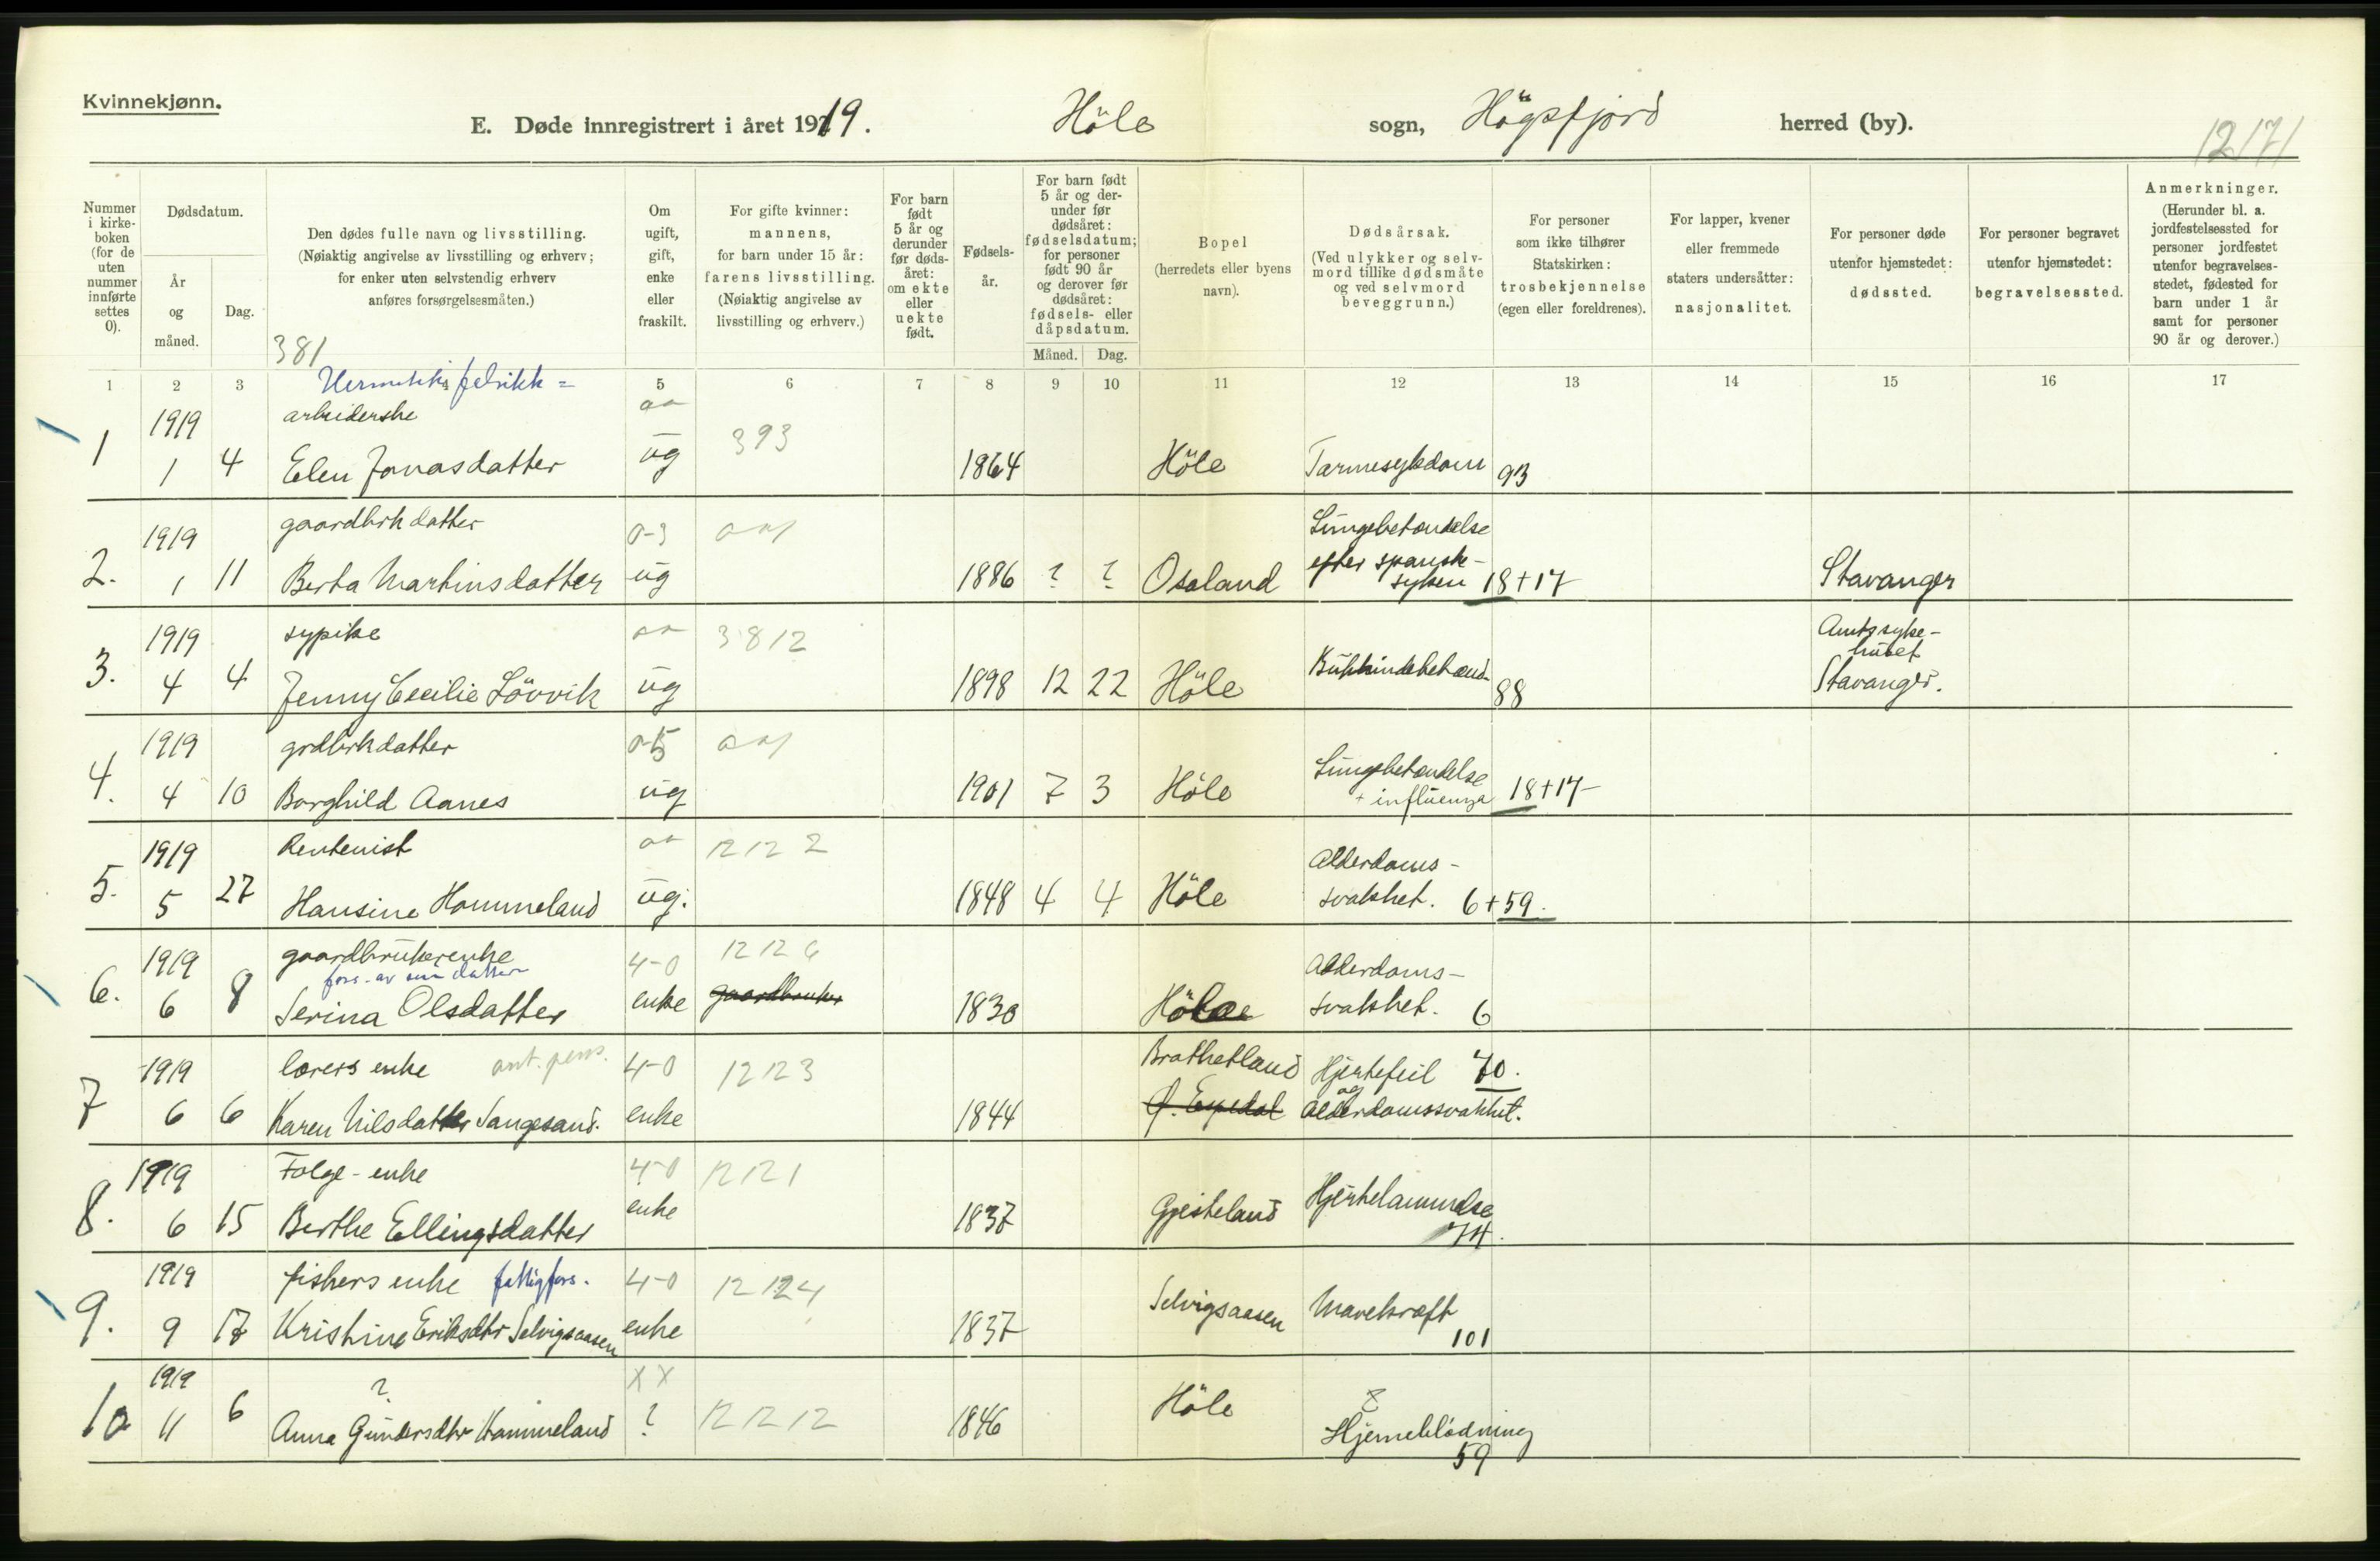 Kvinnekjønn.
E. Døde innregistrert i året 1919. Høle sogn, Høgsfjord herred (by).
12171
Nummer i kirkeboken (for de uten nummer innførte settes 0).
Dødsdatum.
År og måned.
Dag.
Den dødes fulle navn og livsstilling.
(Nøiaktig angivelse av livsstilling og erhverv;
for enker uten selvstendig erhverv
anføres forsørgelsesmåten.)
Om ugift, gift, enke eller fraskilt.
For gifte kvinner:
mannens,
for barn under 15 år:
farens livsstilling.
(Nøiaktig angivelse av
livsstilling og erhverv.)
For barn født 5 år og derunder før dødsåret: om ekte eller uekte født.
Fødselsår.
For barn født 5 år og derunder før dødsåret: fødselsdatum; for personer født 90 år og derover før dødsåret: fødsels- eller dåpsdatum.
Måned. Dag.
Bopel
(herredets eller byens
navn).
Dødsårsak.
(Ved ulykker og selvmord tillike dødsmåte og ved selvmord beveggrunn.)
For personer
som ikke tilhører
Statskirken:
trosbekjennelse
(egen eller foreldrenes).
For lapper, kvener
eller fremmede
staters undersåtter:
nasjonalitet.
For personer døde
utenfor hjemstedet:
dødssted.
For personer begravet
utenfor hjemstedet:
begravelsessted.
Anmerkninger.
(Herunder bl. a. jordfestelsessted for personer jordfestet utenfor begravelsesstedet, fødested for barn under 1 år samt for personer 90 år og derover.)
381
1 2 3 5 6 7 8 9 10 11 12 13 14 15 16 17
Hermetikkfabrikk=
1919 arbeiderske
393
1 1 4 Elen Jonasdatter ug 1864 Høle Tarmesykdom 93
1919 gaardbrk datter Lungebetændelse
efter spanske-
2. 1 11 Berta Martinsdatter ug 1886 ? ? Osaland syken 18+17 Stavanger
1919 sypike 3812 Amtssyke-
huset
3. 4 4 Jenny Cecilie Løvvik ug 1898 12 22 Høle Bukhindebetænd. 88 Stavanger.
1919 grdbrkdatter Lungebetændelse
4. 4 10 Borghild Aanes ug 1901 7 3 Høle + influenza 18+17
1919 Rentenist 12122 Alderdoms-
5. 5 27 Hansine Hommeland ug. 1848 4 4 Høle svakhet. 6+59.
1919 gaardbrukerenke 4-0 12126 Alderdoms-
fors. av sin datter
6. 6 8 Serina Olsdatter enke gaardbruker 1830 Høle svakhet. 6
1919 lærers enke ant. pens. 4-0 12123 Brattetland Hjertefeil 70.
og
7 6 6 Karen Nilsdatter Sangesand. enke 1844 Ø. Espedal Alderdomssvakhet.
1919 Folge-enke 4-0 12121
8. 6 15 Berthe Ellingsdatter enke 1837 Gjesteland Hjertelammelse 74.
1919 fiskers enke fattigfors. 4-0 12124
9. 9 17 Kristine Eriksdtr Selvigsaasen enke 1837 Selvigsaasen Mavekræft 101
1919 ? XX
10 11 6 Anna Gundersdtr Hommeland ? 121212 1846 Høle Hjerneblødning
59